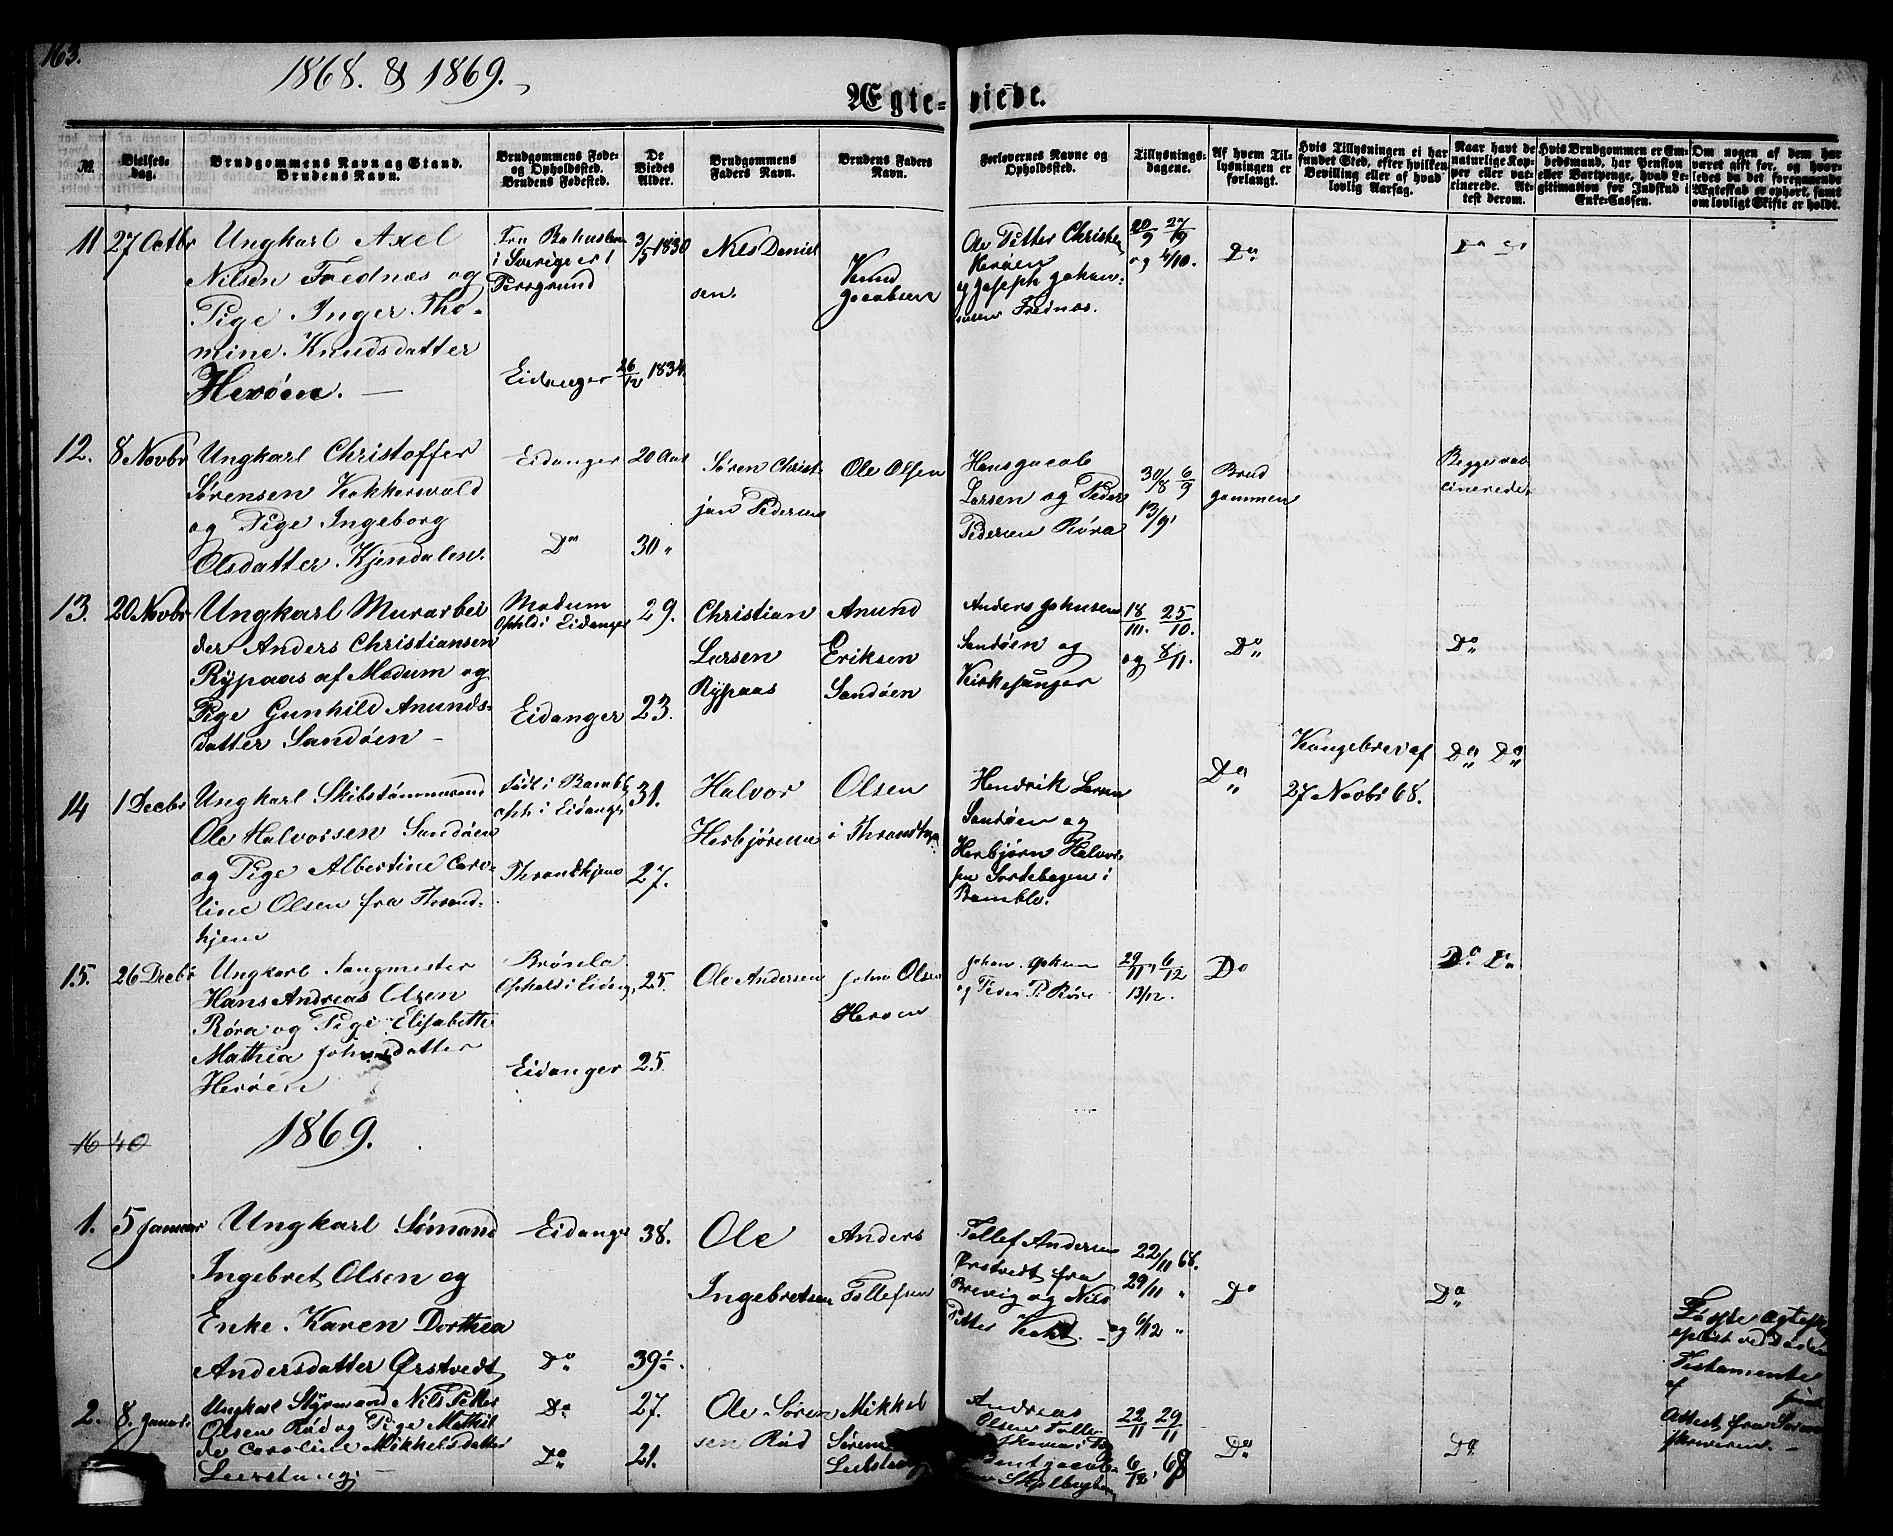 163.
1868. & 1869.
Ægte-viede.
№
Vielses-
dag.
Brudgommens Navn og Stand.
Brudens Navn.
Brudgommens Føde-
og Opholdssted.
Brudens Fødested.
De
Viedes
Alder.
Brudgommens
Faders Navn.
Brudens Faders
Navn.
Forlovernes Navne og
Opholdssted.
Tillysnings-
dagene.
Af hvem Til-
lysningen er
forlangt.
Hvis Tillysningen ei har
fundet Sted, efter hvilken
Bevilling eller af hvad
lovlig Aarsag.
Naar havt de
naturlige Kop-
per eller vac-
cinerede. At-
test derom.
Hvis Brudgommen er Em-
bedsmand, har Pension
eller Vartpenge, hvad Le-
gitimation for Indskud i
Enke-Cassen.
Om nogen af dem har
været gift før, og hvor-
ledes da det foregaaende
Ægteskab er ophørt, samt
om lovligt Skifte er holdt.
11 27 Octbr
Ungkarl Axel
Nilsen Frednæs og
Pige Inger Tho-
mine Knudsdatter
Herøen. —
Fra Bahuslen
i Sverige er i
Porsgrund
Eidanger
3/5 1830
26/12 1834.
Nils Daniel
sen.
Knud
Jacobsen
Ole Petter Christen
Herøen
og Joseph Johan-
nesen Frednæs.
20/9 27/9
og 4/10.
Do
Do
12. 8 Novbr
Ungkarl Christoffer
Sørensen Kokkersvold
og Pige Ingeborg
Olsdatter Kjendalen.
Eidanger
Do
20 Aar
30 "
Søren Christ
jan Pedersen
Ole Olsen
Hans Jacob
Larsen og Peder
Pedersen Røra
30/8 6/9
13/9
Brud
gommen
Begge vac
cinerede
13. 20 Novbr
Ungkarl Murarbei
der Anders Christiansen
Rypaas af Modum og
Pige Gunhild Anunds-
datter Sandøen —
Modum
Ophld i Eidanger
Eidanger
29.
23.
Christian
Larsen
Rypaas
Anund
Eriksen
Sandøen
Anders Johnsen
Sandøen og
Kirkesanger
18/10. 25/10.
og 8/11.
Do
Do
14 1 Decbr
Ungkarl Skibstømmermand
Ole Halvorsen Sandøen
og Pige Albertine Caro-
line Olsen fra Thrond-
hjem
Født i Bamble
oph. i Eidanger
Throndhjem
31.
27.
Halvor
Herbjørnsen
Olsen
i Throndhjem
Hendrik Larsen
Sandøen og
Herbjørn Halvor-
sen Sortebogen i
Bamble.
Do
Kongebrev af
27 Novbr 68.
Do Do
15. 26 Decbr
Ungkarl Sangmester
Hans Andreas Olsen
Røra og Pige Elisabeth
Mathia Johnsdatter
Herøen
Ophold i Eidang.
Eidanger
25.
25.
Ole Andersen
John Olsen
Herøen
og Peder P. Røra
29/11, 6/12
13/12.
Do
Do Do
16 40
1869.
1. 5 Januar
Ungkarl Sømand
Ingebret Olsen og
Enke Karen Dorthea
Andersdatter Ørstvedt
Eidanger
Do
38.
39½.
Ole
Ingebretsen
Anders
Tollefsen
Tollef Andersen
Ørstvedt fra
Brevig og Nils
Petter
22/11 68.
29/11 "
og 6/12 "
Do
Do
Første Ægtesk.
opløst ved Døden
Testamente
af
Attest fra Soren
skriveren. —
2. 8. Januar
Ungkarl Styrmand Nils Petter
Olsen Rød og Pige Mathil
de Caroline Mikkelsdatter
Leerstang. —
Do
Do
27.
21.
Ole Søren
sen Rød
Mikkel
Sørensen
Leerstang
Andreas
Olsen
22/11 29/11
6/12. 68
Do
Do